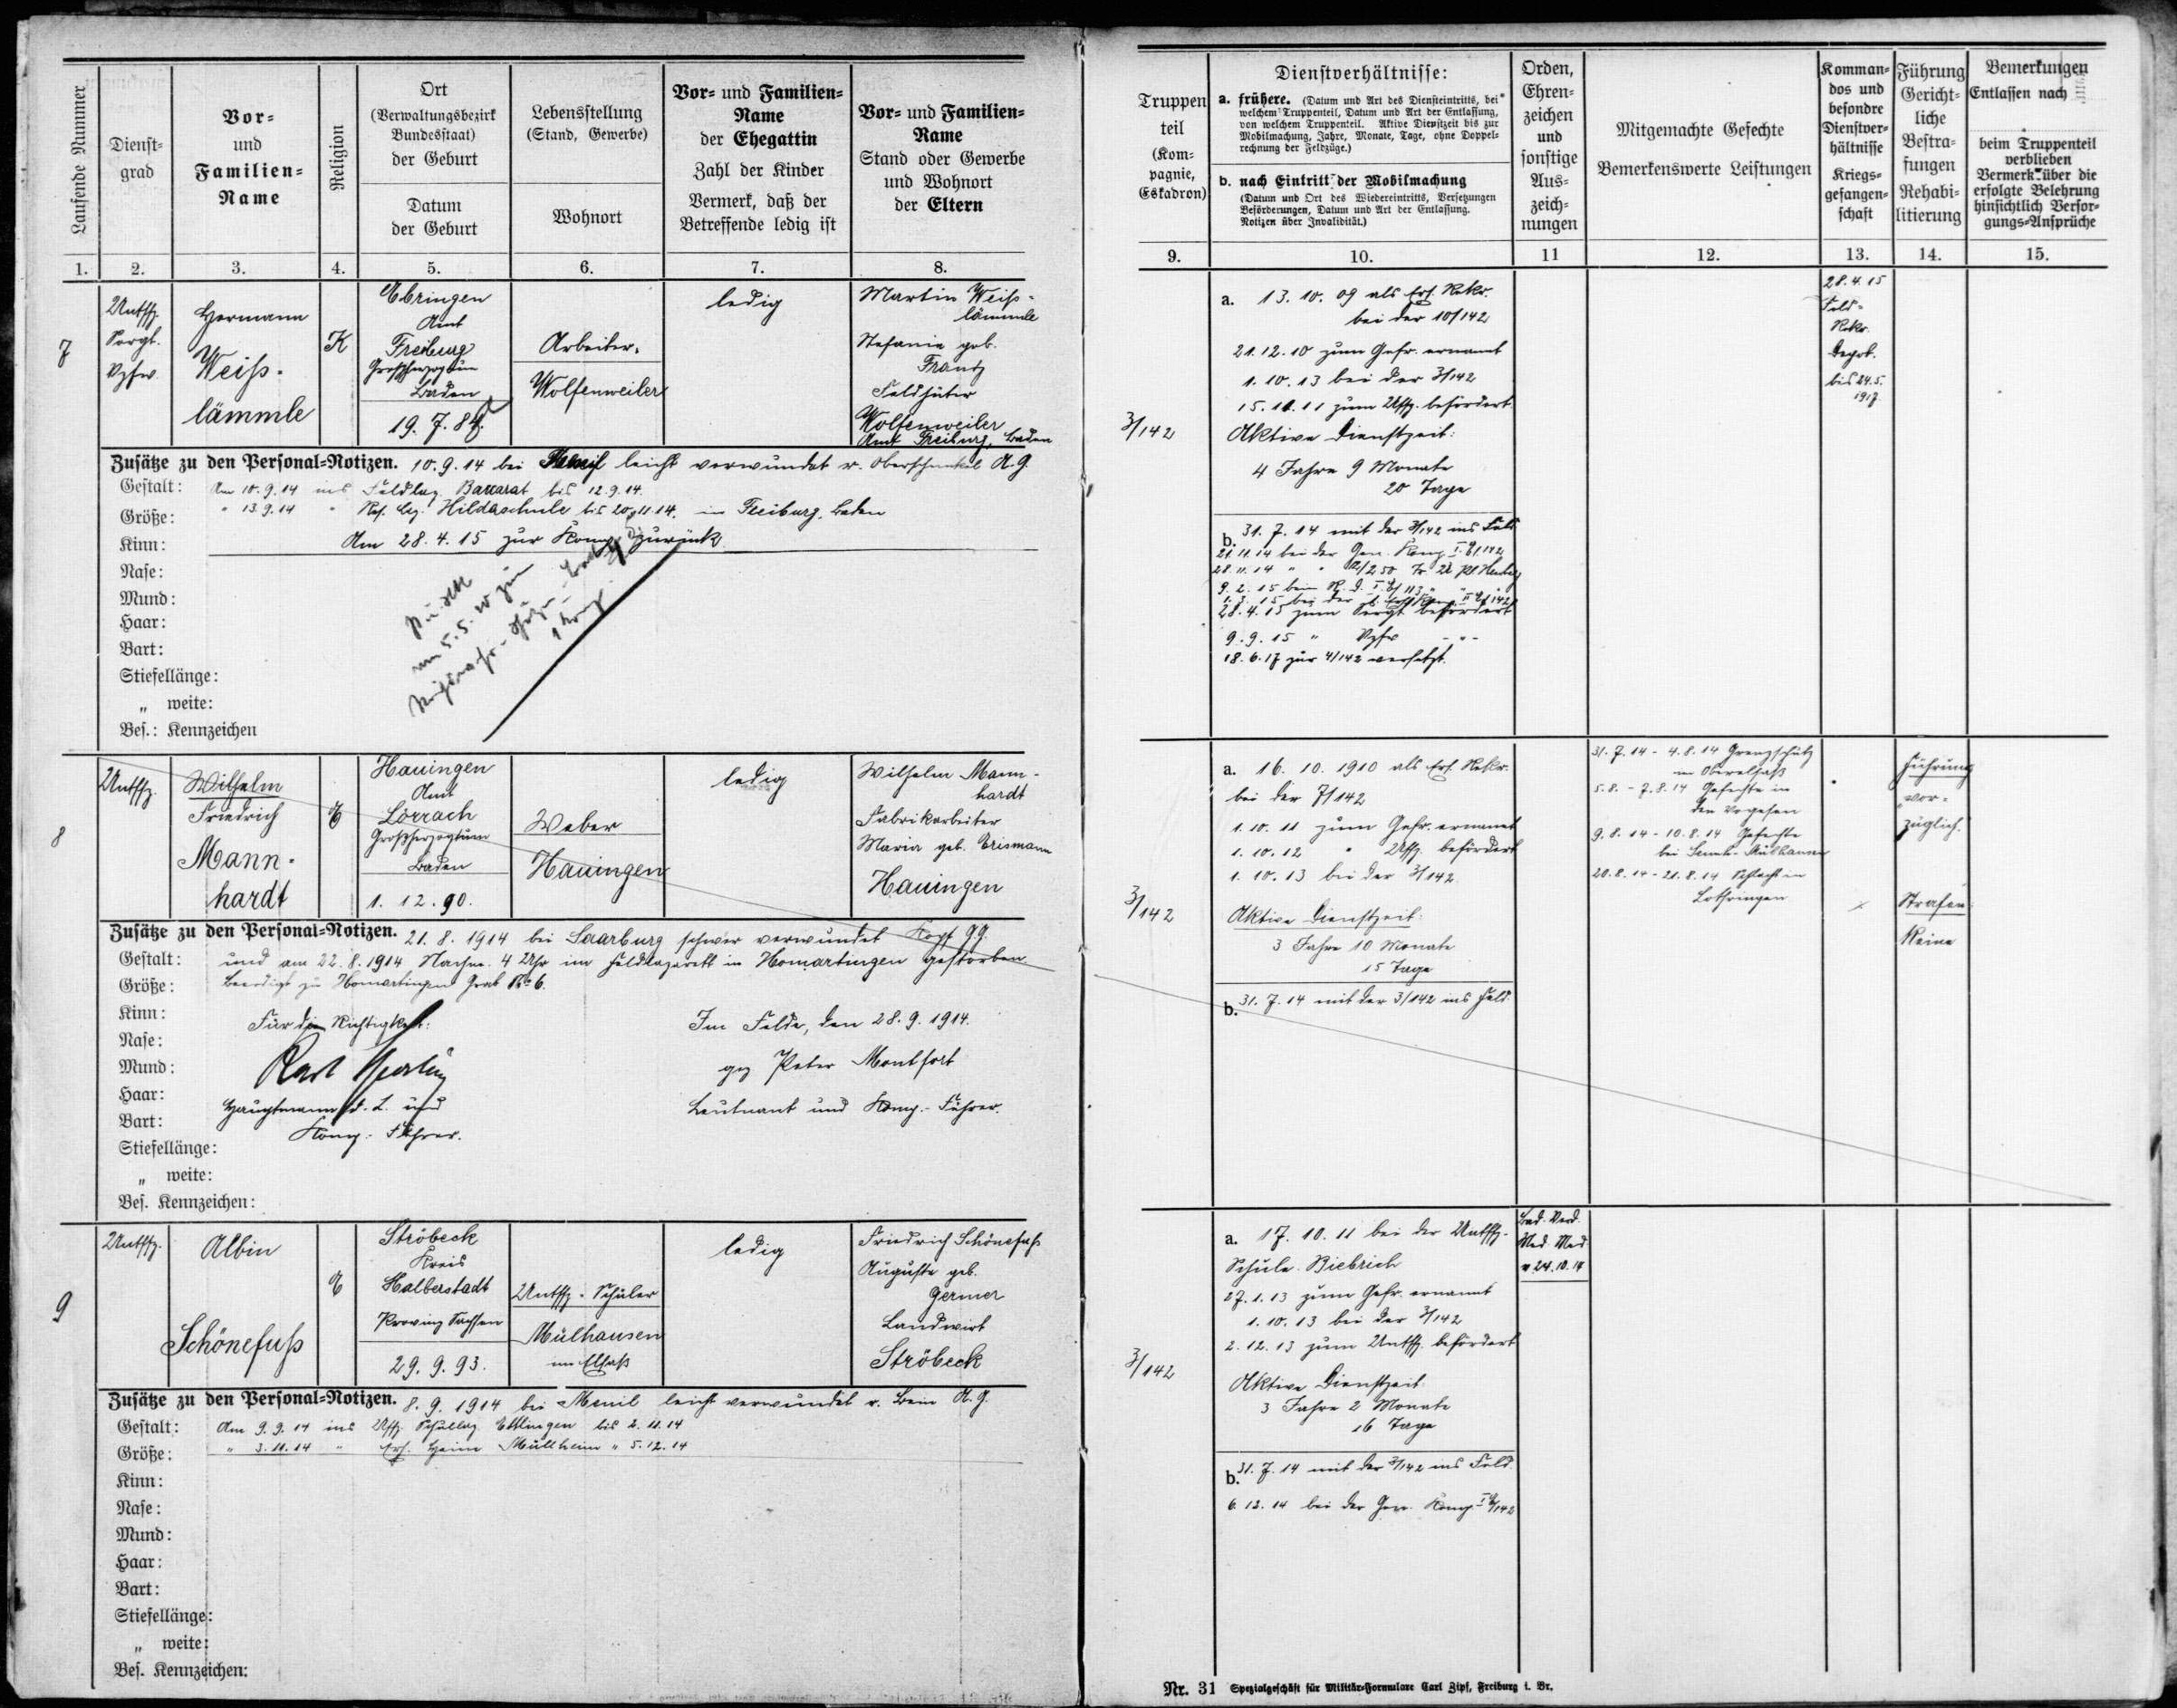 Laufende Nummer
Dienst-
grad
Vor-
und
Familien-
Name
Religion
Ort
(Verwaltungsbezirk
Bundesstaat)
der Geburt
Datum
der Geburt
Lebensstellung
(Stand, Gewerbe)
Wohnort
Vor- und Familien-
Name
der Ehegattin
Zahl der Kinder
Vermerk, daß der
Betreffende ledig ist
Vor- und Familien-
Name
Stand oder Gewerbe
und Wohnort
der Eltern
Truppen
teil
(Kom-
pagnie,
Eskadron)
Dienstverhältnisse:
a. frühere. (Datum und Art des Diensteintritts, bei
welchem Truppenteil, Datum und Art der Entlassung,
von welchem Truppenteil. Aktive Dienstzeit bis zur
Mobilmachung, Jahre, Monate, Tage, ohne Doppel-
rechnung der Feldzüge.)
b. nach Eintritt der Mobilmachung
(Datum und Ort des Wiedereintritts, Versetzungen
Beförderungen, Datum und Art der Entlassung.
Notizen über Invalidität.)
Orden,
Ehren-
zeichen
und
sonstige
Aus-
zeich-
nungen
Mitgemachte Gefechte
Bemerkenswerte Leistungen
Komman-
dos und
besondre
Dienstver-
hältnisse
Kriegs-
gefangen-
schaft
Führung
Gericht-
liche
Bestra-
fungen
Rehabi-
litierung
Bemerkungen
Entlassen nach
beim Truppenteil
verblieben
Vermerk über die
erfolgte Belehrung
hinsichtlich Versor-
gungs-Ansprüche
1. 2. 3. 4. 5. 6. 7. 8. 9. 10. 11 12. 13. 14. 15.
7
Untffz.
Sergt.
Vzfw.
Hermann
Weiß-
lämmle
K
Ebringen
Amt
Freiburg
Großherzogtum
Baden
19. 7. 89.
Arbeiter.
Wolfenweiler
ledig
Martin Weiß-
lämmle
Stefanie geb.
Frantz
Feldhüter
Wolfenweiler
Amt Freiburg, Baden
3/142
a. 13. 10. 09 als Ers. Rekr.
bei der 10/142
21. 12. 10 zum Gefr. ernannt
1. 10. 13 bei der 3/142
15. 11. 11 zum Uffz. befördert
Aktive Dienstzeit:
4 Jahre 9 Monate
20 Tage
b. 31. 7. 14 mit der 3/142 ins Feld
21. 11. 14 bei der Gen. Komp. I. E/142
28. 11. 14
9. 2. 15 beim
1. 3. 15 bei der
28. 4. 15 zum Sergt. befördert
9. 9. 15 " Vzfw - " -
18. 6. 17 zur 4/142 versetzt.
28. 4. 15
Feld-
Rekr.
Depot.
bis 24. 5.
1917.
Zusätze zu den Personal-Notizen. 10. 9. 14 bei Menil leicht verwundet r. Oberschenkel A. G.
Gestalt: Am 10. 9. 14 ins Feldlaz. Baccarat bis 12. 9. 14.
Größe: " 13. 9. 14 " Res. Laz. Hildaschule bis 20. 11. 14. in Freiburg, Baden
Kinn: Am 28. 4. 15 zur Komp. zurück
Nase:
Mund:
Haar:
Bart:
Stiefellänge:
„ weite:
Bes.: Kennzeichen
8
Untffz.
Wilhelm
Friedrich
Mann-
hardt
E
Hauingen
Amt
Lörrach
Großherzogtum
Baden
1. 12. 90.
Weber
Hauingen
ledig
Wilhelm Mann-
hardt
Fabrikarbeiter
Maria geb. Erismann
Hauingen
3/142
a. 16. 10. 1910 als Ers. Rekr.
bei der 7/142
1. 10. 11 zum Gefr. ernannt
1. 10. 12 " Uffz. befördert
1. 10. 13 bei der 3/142
Aktive Dienstzeit:
3 Jahre 10 Monate
15 Tage
b. 31. 7. 14 mit der 3/142 ins Feld.
31. 7. 14 - 4. 8. 14 Grenzschutz
im Oberelsaß
5. 8. - 7. 8. 14 Gefechte in
den Vogesen
9. 8. 14 - 10. 8. 14 Gefechte
bei Mülhausen
20. 8. 14 - 21. 8. 14 Schlacht in
Lothringen
Führung
vor-
züglich.
Strafen:
Keine
Zusätze zu den Personal-Notizen. 21. 8. 1914 bei Saarburg schwer verwundet Kopf G. G.
Gestalt: und am 22. 8. 1914 Nachm. 4 Uhr im Feldlazarett in Homartingen gestorben.
Größe: Beerdigt zu Homartingen Grab No 6.
Kinn: Für die Richtigkeit: Im Felde, den 28. 9. 1914.
Nase:
Mund: Karl gez Peter Montfort
Haar: Hauptmann d. L. und Leutnant und Komp.-Führer.
Bart: Komp.-Führer.
Stiefellänge:
„ weite:
Bes. Kennzeichen:
9
Untffz.
Albin
Schönefuß
E
Ströbeck
Kreis
Halberstadt
Provinz Sachsen
29. 9. 93.
Untffz.-Schüler
Mülhausen
im Elsaß
ledig
Friedrich Schönefuß
Auguste geb.
Germer
Landwirt
Ströbeck
3/142
a. 17. 10. 11 bei der Untffz.-
Schule Biebrich
27. 1. 13 zum Gefr. ernannt
1. 10. 13 bei der 3/142
2. 12. 13 zum Untffz. befördert
Aktive Dienstzeit:
3 Jahre 2 Monate
16 Tage
b. 31. 7. 14 mit der 3/142 ins Feld.
6. 12. 14 bei der Gen. Komp. I E/142
Bad. Verd.
Med.
24. 10. 14
Zusätze zu den Personal-Notizen. 8. 9. 1914 bei Menil leicht verwundet r. Bein A. G.
Gestalt: Am 9. 9. 14 ins Uffz. Schullaz. Ettlingen bis 2. 11. 14
Größe: " 3. 11. 14 " Heim Müllheim " 5. 12. 14
Kinn:
Nase:
Mund:
Haar:
Bart:
Stiefellänge:
„ weite:
Bes. Kennzeichen:
Nr. 31 Spezialgeschäft für Militär-Formulare Carl Zipf, Freiburg i. Br.